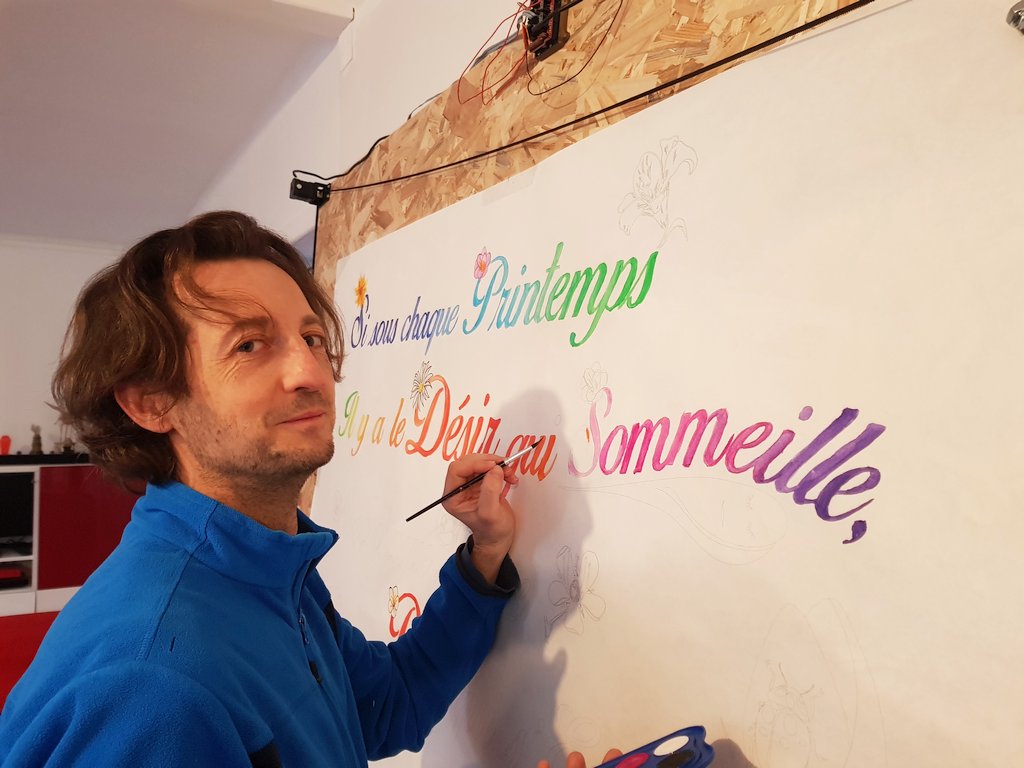 Si sous chaque Printemps
Il y a le Désir qui Sommeille,